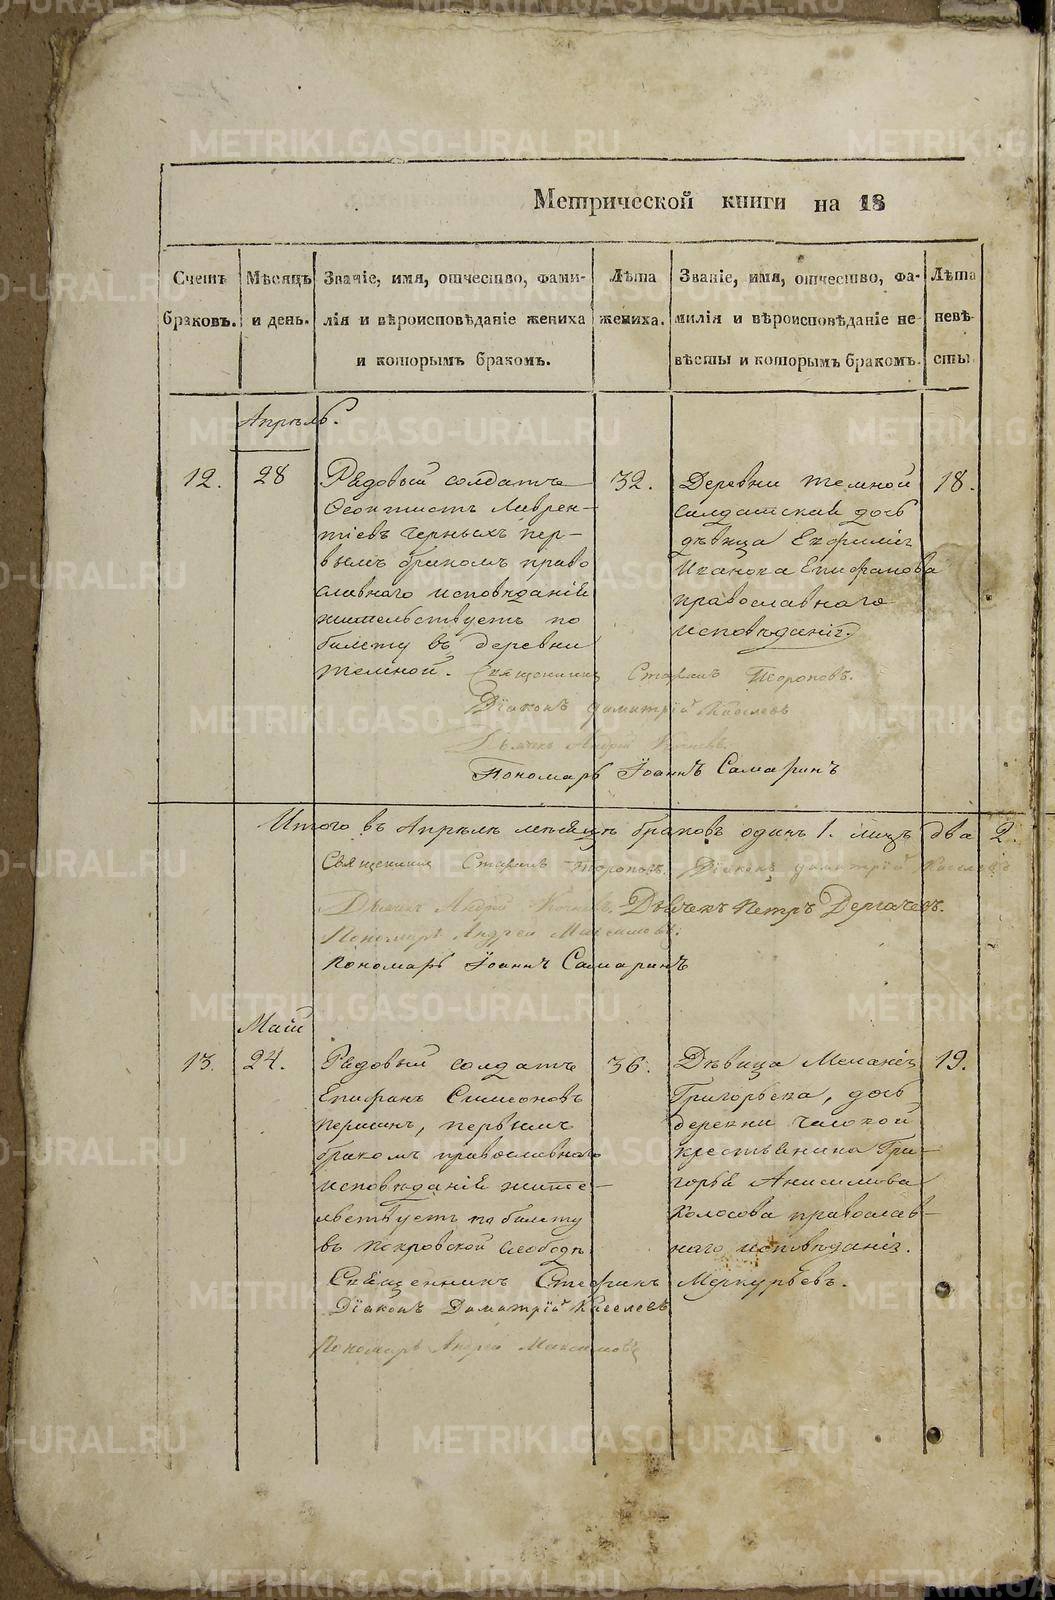 Метрической книги на 18
Счетъ браковъ.
Мѣсяцъ и день.
Званіе, имя, отчество, фами-
лія и вѣроисповѣданіе жениха
и которымъ бракомъ.
Лѣта жениха.
Званіе, имя, отчество, фа-
милія и вѣроисповѣданіе не-
вѣсты и которымъ бракомъ.
Лѣта невѣ-
сты
Апрѣль.
12.
28
Рядовый солдатъ
Феоктистъ Лаврен-
тіевъ Черныхъ пер-
вымъ бракомъ право
славнаго исповѣданія
жительствуетъ по
билету въ деревни
темной.
32.
Деревни темной
салдатская дочь
дѣвица Евфимія
Иванова Епифанова
православнаго
исповѣданія.
18.
Священникъ Стефанъ Тороповъ.
Діаконъ Димитрій Киселевъ
Дьячекъ Андрей
Пономарь Іоаннъ Самаринъ
Итого въ Апрѣлѣ мѣсяцѣ браковъ одинъ 1. лицъ два 2.
Священникъ Стефанъ Тороповъ. Діаконъ Димитрій Киселевъ
Дьячекъ Андрей Дьячекъ Петръ Дергачевъ.
Пономарь Андрей Максимовъ.
Пономарь Іоаннъ Самаринъ
Май
13.
24.
Рядовый солдатъ
Епифанъ Симеоновъ
Першинъ, первымъ
бракомъ православнаго
исповѣданія жите-
льствуетъ по билету
въ Покровской слободѣ
36.
Дѣвица Меланія
Григорьева, дочь
деревни
крестьянина Гри-
горья Анисимова
Колосова православ-
наго исповѣданія.
19.
Священникъ Стефанъ Меркурьевъ.
Діаконъ Димитрій Киселевъ
Пономарь Андрей Максимовъ
METRIKI.GASO-URAL.RU